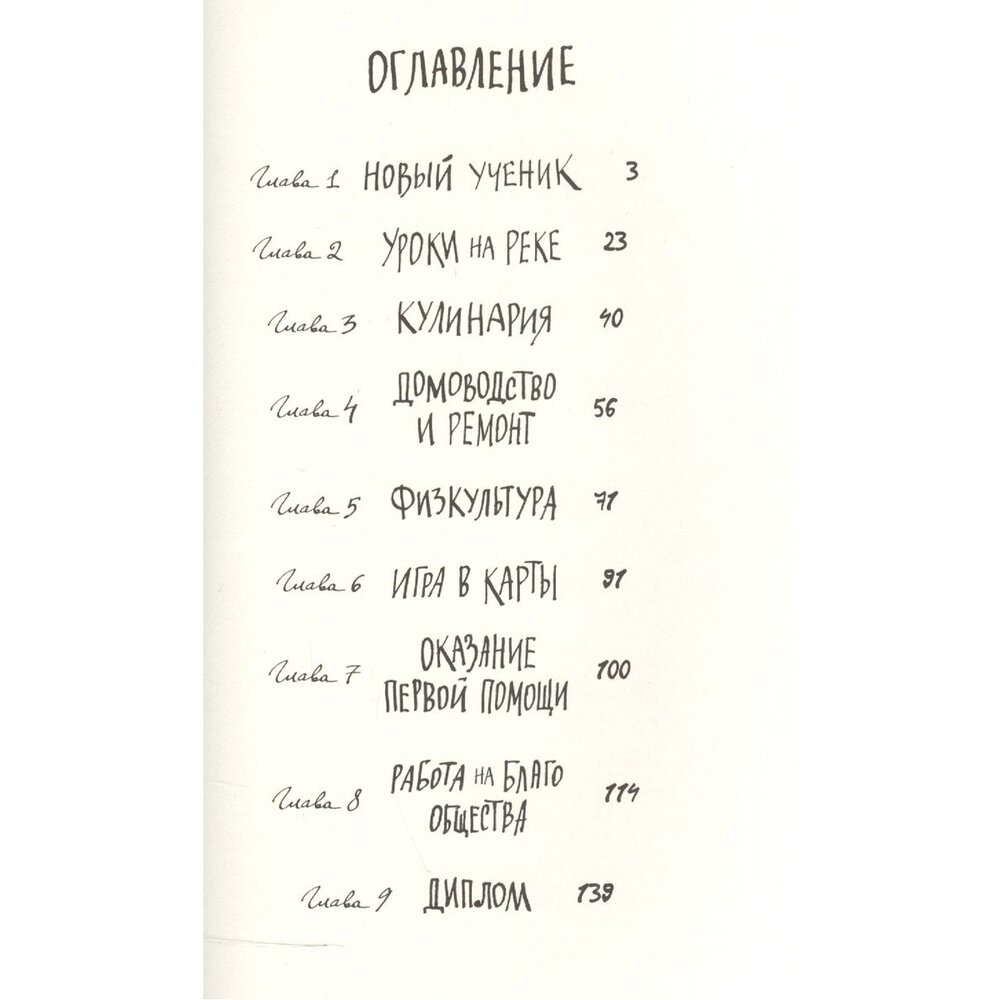 ОГЛАВЛЕНИЕ
Глава 1 НОВЫЙ УЧЕНИК 3
Глава 2 УРОКИ НА РЕКЕ 23
Глава 3 КУЛИНАРИЯ 40
Глава 4 ДОМОВОДСТВО
И РЕМОНТ 56
Глава 5 ФИЗКУЛЬТУРА 71
Глава 6 ИГРА В КАРТЫ 91
Глава 7 ОКАЗАНИЕ
ПЕРВОЙ ПОМОЩИ 100
Глава 8 РАБОТА НА БЛАГО
ОБЩЕСТВА 114
Глава 9 ДИПЛОМ 139